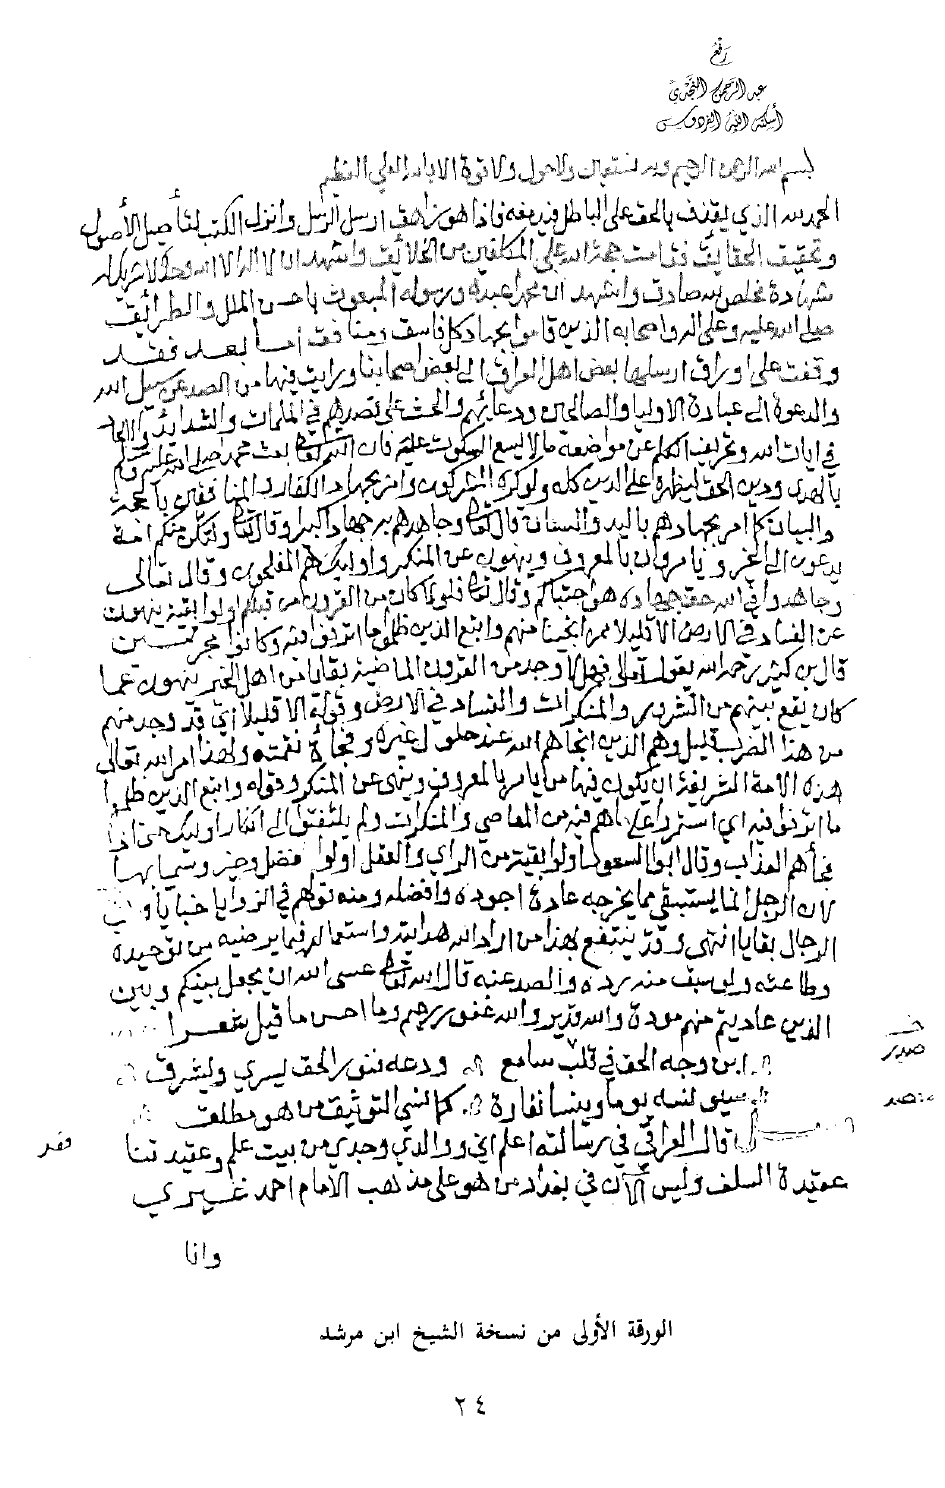 رفع
عبد الرحمن النجدي
أسكنه الله الفردوس
بسم الله الرحمن الرحيم وبه نستعين ولا حول ولا قوة الا بالله العلي العظيم
الحمد لله الذي يقذف بالحق على الباطل فيدمغه فاذا هو زاهق ارسل الرسل وانزل الكتب لتأصيل الأصول
وتحقيق الحقايق فقامت حجة الله على المكلفين من الخلائق واشهد ان لا اله الا الله وحده لا شريك له
شهادة مخلص لله صادق واشهد ان محمدا عبده ورسوله المبعوث باحسن الملل والطرائق
صلى الله عليه وعلى اله واصحابه الذين قاموا بجهاد كل فاسق ومنافق أما بعد فقد
وقفت على اوراق ارسلها بعض اهل العراق الى بعض اصحابنا ورايت فيها من الصد عن سبيل الله
والدعوة الى عبادة الاوليا والصالحين ودعائهم والحث على قصدهم في الملمات والشدائد والالحاد
في ايات الله وتحريف الكلم عن مواضعه ما لا يسع السكوت عليه فان الله تعالى بعث محمد صلى الله عليه وسلم
بالهدى ودين الحق ليظهره على الدين كله ولو كره المشركون وامر بجهاد الكفار والمنافقين بالحجة
والبيان كما امر بجهادهم باليد والسنان قال تعالى وجاهدهم به جهادا كبيرا وقال تعالى ولتكن منكم امة
يدعون الى الخير ويامرون بالمعروف وينهون عن المنكر واولئك هم المفلحون وقال تعالى
وجاهدوا في الله حق جهاده هو اجتباكم وقال تعالى فلولا كان من القرون من قبلكم اولوا بقية ينهون
عن الفساد في الارض الا قليلا ممن انجينا منهم واتبع الذين ظلموا ما اترفوا فيه وكانوا مجرمين
قال بن كثير رحمه الله يقول تعالى فهلا وجد من القرون الماضية بقايا من اهل الخير ينهون عما
كان يقع بينهم من الشرور والمنكرات والفساد في الارض وقوله الا قليلا أي قد وجد منهم
من هذا الضرب قليل وهم الذين انجاهم الله عند حلول غيره وفجأة نقمته ولهذا امر الله تعالى
هذه الامة الشريفة ان يكون فيها من يامر بالمعروف وينهى عن المنكر وقوله واتبع الذين ظلموا
ما اترفوا فيه اي استمروا على ما هم فيه من المعاصي والمنكرات ولم يلتفتوا الى انكار اوليك حتى اذا
فجأهم العذاب وقال ابوا السعود اولوا بقية من الراي والعقل اولوا فضل وخير وسميا بها
لان الرجل انما يستبقي مما يخرجه عادة اجوده وافضله ومنه قولهم في الزوايا خبايا وفي
الرجال بقايا انتهى وقد ينتفع بهذا من اراد الله هدايته واستعماله فيما يرضيه من توحيده
وطاعته ولو سبق منه رده والصد عنه قال الله تعالى عسى الله ان يجعل بينكم وبين
الذين عاديتم منهم مودة والله قدير والله غفور رحيم وما احسن ما قيل شعرا
ابن وجه الحق في قلب سامع ودعه فنور الحق يسري ويشرق
صدر
سيونسه يوما وينسا نفاره كما نسي التوثيق من هو مطلق
قال العراقي في رسالته اعلم اني ووالدي وجدي من بيت علم وعقيدتنا
عقيدة السلف وليس الآن في بغداد من هو على مذهب الامام احمد غيري
وانا
الورقة الأولى من نسخة الشيخ ابن مرشد
٢٤